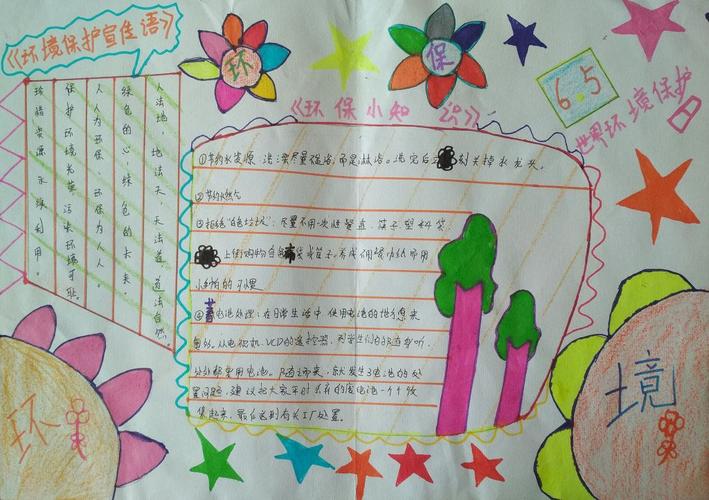 《环境保护宣传语》
环
保
6.5
世界环境保护日
《环保小知识》
人法地，地法天，天法道，道法自然。
绿色的心，绿色的未来。
人人为环保，环保为人人。
保护环境光荣，污染环境可耻。
珍惜资源永续利用。
①节约水资源：洗澡尽量 而是淋浴。洗完后 刻关掉水龙头。
②节约燃气
③拒绝"白色垃圾"：尽量不用一次性餐盒、筷子、塑料袋
上街购物自备布袋或篮子，养成用 纸而用
小手帕的习惯
④蓄电池处理：在日常生活中，使用电池的地方愈来
愈多。从电视机、VCD的遥控器，到学生们的随身听，
处处都要用电池。随之而来，就发生了电池的处
置问题，建议把大家平时 的废电池一个个收
集起来，最后送到有关工厂处置。
环
境